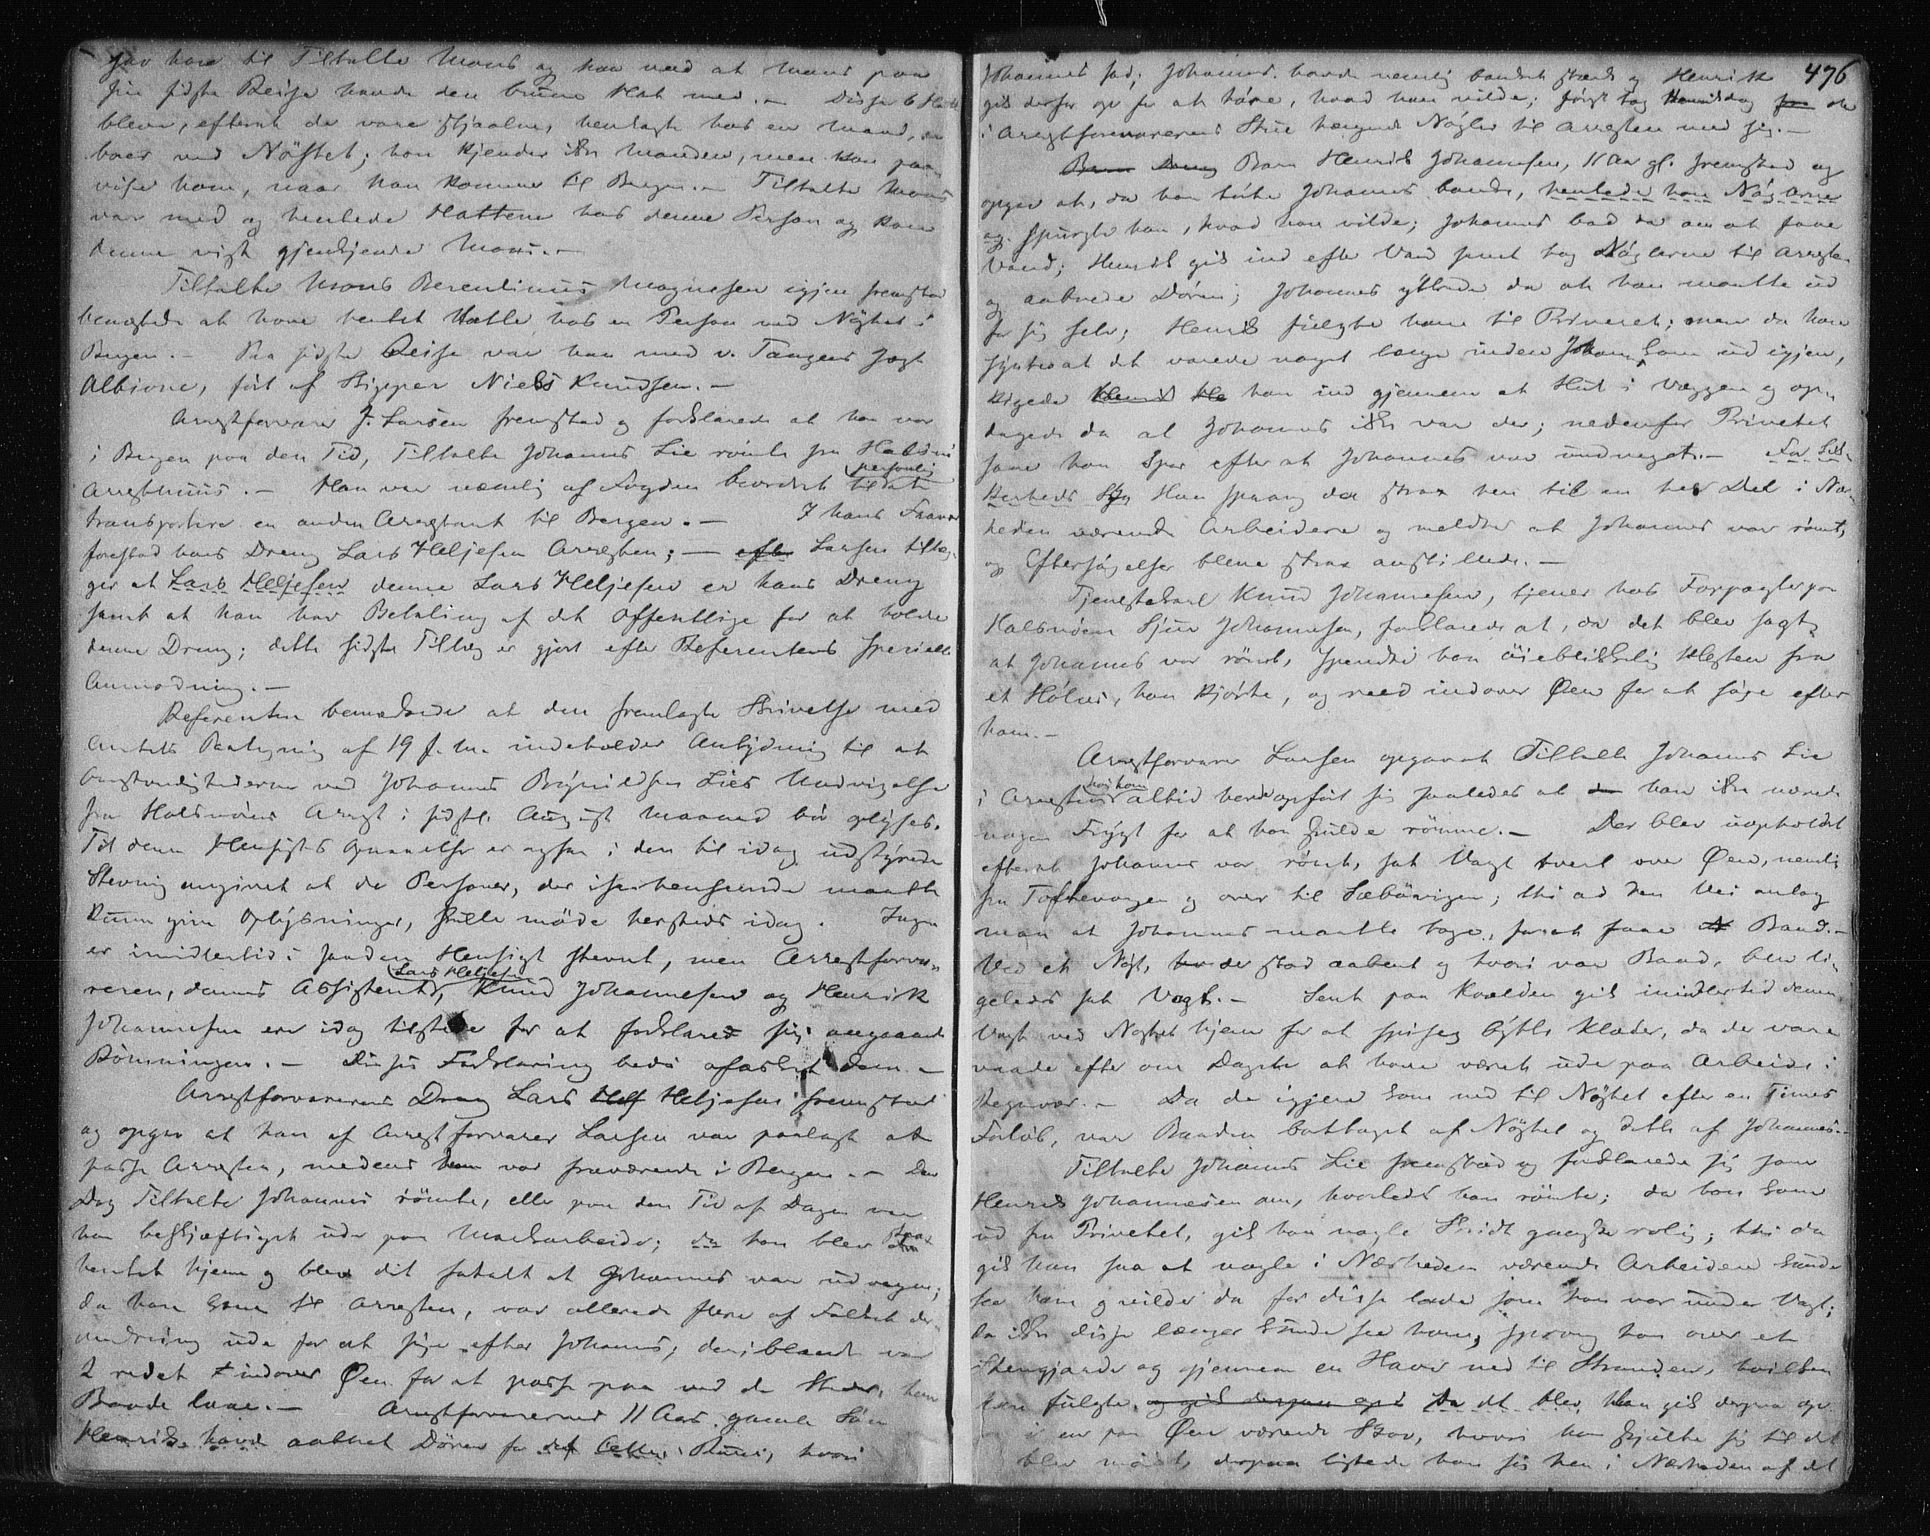 gav han til Tiltalte Mons og han ved at Mons paa
sin sidste Reise havde den brune Hat med. — Disse 6 Hatte
bleve, efterat de vare stjaalne, henlagte hos en Mand, der
boer ved Nöstet; han kjender ikke Manden, men kan paa-
vise ham, naar han kommer til Bergen. — Tiltalte Mons
var med og hentede Hattene hos denne Person og kan
denne vist gjenkjende Mons. —
Tiltalte Mons Berentinus Magnesen igjen fremstod
benægtede at have hentet Hatte hos en Person ved Nöstet i
Bergen. — Paa sidste Reise var han med v. Tangens Jagt
Albione, fört af Skipper Niels Knudsen. —
Arrestforvarer J. Larsen fremstod og forklarede at han var
i Bergen paa den Tid, Tiltalte Johannes Lie römte fra Halsnö
Arresthuus. — Han var nemlig af Fogden beordret til at personlig
transportere en anden Arrestant til Bergen. — I hans Fravær
forestod hans Dreng Lars Heljesen Arresten; — efter Larsen tillæg-
ger at Lars Heljesen denne Lars Heljesen er hans Dreng
samt at han har Betaling af det Offentlige for at holde
denne Dreng; dette sidste Tillæg er gjort efter Referentens specielle
Anmodning. —
Referenten bemærkede at den fremlagte Skrivelse med
Amtets Paategning af 19 f. M. indeholder Antydning til at
Omstændighederne ved Johannes Brynildsen Lies Undvigelse
fra Halsnöens Arrest i sidstl. August Maaned bör oplyses.
Til denne Hensigts Opnaaelse er ogsaa i den til idag udstyrede
Stevning angivet at de Personer, der i saa henseende maatte
kunne give Oplysninger, skulle möde hersteds idag. Ingen
er imidlertid i saadan Hensigt stevnet, men Arrestforva-
reren, dennes Assistent, Lars Heljesen Knud Johannesen og Henrik
Johannesen ere idag tilstede for at forklare sig angaaende
Römningen. — Disses Forklaring bedes afæsket dem. —
Arrestforvarerens Dreng Lars Helj Heljesen fremstod
og opgav at han af Arrestforvarer Larsen var paalagt at
passe Arresten, medens han var fraværende i Bergen. — Den
Dag Tiltalte Johannes römte, eller paa den Tid af Dagen var
han beskjæftiget ude paa Markarbeide; da han blev strax
hentet hjem og blev det fortalt at Johannes var udvegen;
da han kom til Arresten, var allerede flere af Folket der-
omkring ude for at söge efter Johannes; deriblandt var
2 redet indover Öen for at passe paa ved de Steder, hvor
Baade laae. — Arrestforvarerens 11 Aars gamle Sön
Henrik havde aabnet Dören for det Cellen i Huset, hvori

476
Johannes sad; Johannes havde nemlig banket stærk og Henrik
gik derfor op for at höre, hvad han vilde; först tog Henrik dog de
i Arrestforvarerens Stue hængende Nögler til Arresten med sig. —
Barn Dreng Barn Henrik Johannesen, 11 Aar gl. fremstod og
opgav at, da han hörte Johannes banke, hentede han Nöglerne
og spurgte ham, hvad han vilde; Johannes bad da om at faae
Vand; Henrik gik ind efter Vand samt tog Nöglerne til Arresten
og aabnede Dören; Johannes yttrede da at han maatte ud
for sig selv; Henrik fulgte ham til Privetet; men da han
syntes at det varede noget længe inden Johannes kom ud igjen,
kigede Henrik han ind gjennem et Hul i Væggen og op-
dagede da at Johannes ikke var der; nedenfor Privetet
saae han Spor efter at Johannes var undveget. — For Sik-
kerheds Han sprang da strax hen til en hel Del i Nær-
heden værende Arbeidere og meldte at Johannes var römt,
og Eftersögelser bleve strax anstillede. —
Tjenestekarl Knud Johannesen, tjener hos Forpagter paa
Halsnöen Sjur Johannesen, forklarede at, da det blev sagt
at Johannes var römt, spendte han öieblikkelig Hesten fra
et Hölæs, han kjörte, og reed indover Öen for at söge efter
ham. —
Arrestforvarer Larsen opgav at Tiltalte Johannes Lie
i Arresten hos ham altid havde opfört sig saaledes at han ikke nærede
nogen Frygt for at han skulde römme. — Der blev uopholdelig
efterat Johannes var römt, sat Vagt tvert over Öen, nemlig
fra Toftevaagen og over til Sæbövigen; thi ad den Vei antog
man at Johannes maatte tage, for at faae Baad. —
Ved et Nöst, der stod aabent og hvori var Baad, blev li-
geledes sat Vagt. — Sent paa Kvælden gik imidlertid denne
Vagt ved Nöstet hjem for at spise og bytte Klæder, da der vare
vaade efter om Dagen at have været ude paa Arbeide i
Regnveir. — Da de igjen kom ned til Nöstet efter en Times
Forlöb, var Baaden borttaget af Nöstet og dette af Johannes. —
Tiltalte Johannes Lie fremstod og forklarede sig som
Henrik Johannesen om, hvorledes han römte; da han kom
ud fra Privetet, gik han nogle Skridt ganske rolig; thi da
gik han saa at nogle i Nærheden værende Arbeidere kunde
see ham og vilde da for disse lade som han var under Vagt;
da ikke disse længer kunde see ham, sprang han over et
Stengjærde og gjennem en Have ned til Stranden, hvilken
han fulgte, og gik derpaa op i Da det blev Han gik derpaa op
i en paa Öen værende Skov, hvori han skjulte sig til det
blev mörkt, derpaa listede han sig hen i Nærheden af det